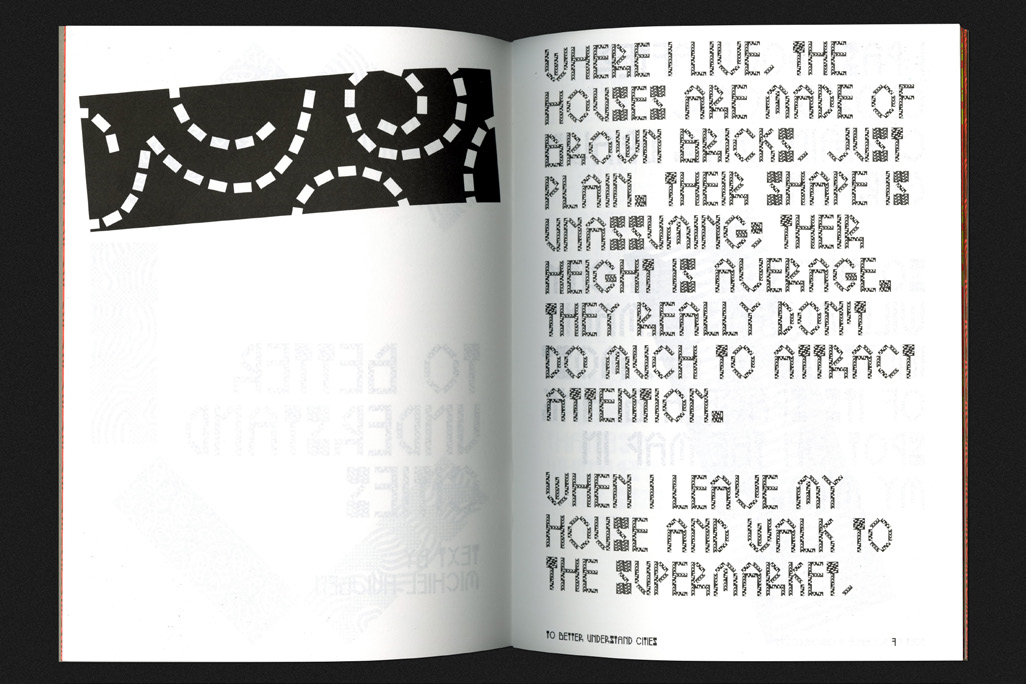 WHERE I LIVE, THE
HOUSES ARE MADE OF
BROWN BRICKS, JUST
PLAIN. THEIR SHAPE IS
UNASSUMING; THEIR
HEIGHT IS AVERAGE.
THEY REALLY DON'T
DO MUCH TO ATTRACT
ATTENTION.
WHEN I LEAVE MY
HOUSE AND WALK TO
THE SUPERMARKET,
TO BETTER UNDERSTAND CITIES
TO BETTER
UNDERSTAND
CITIES
TEXT BY